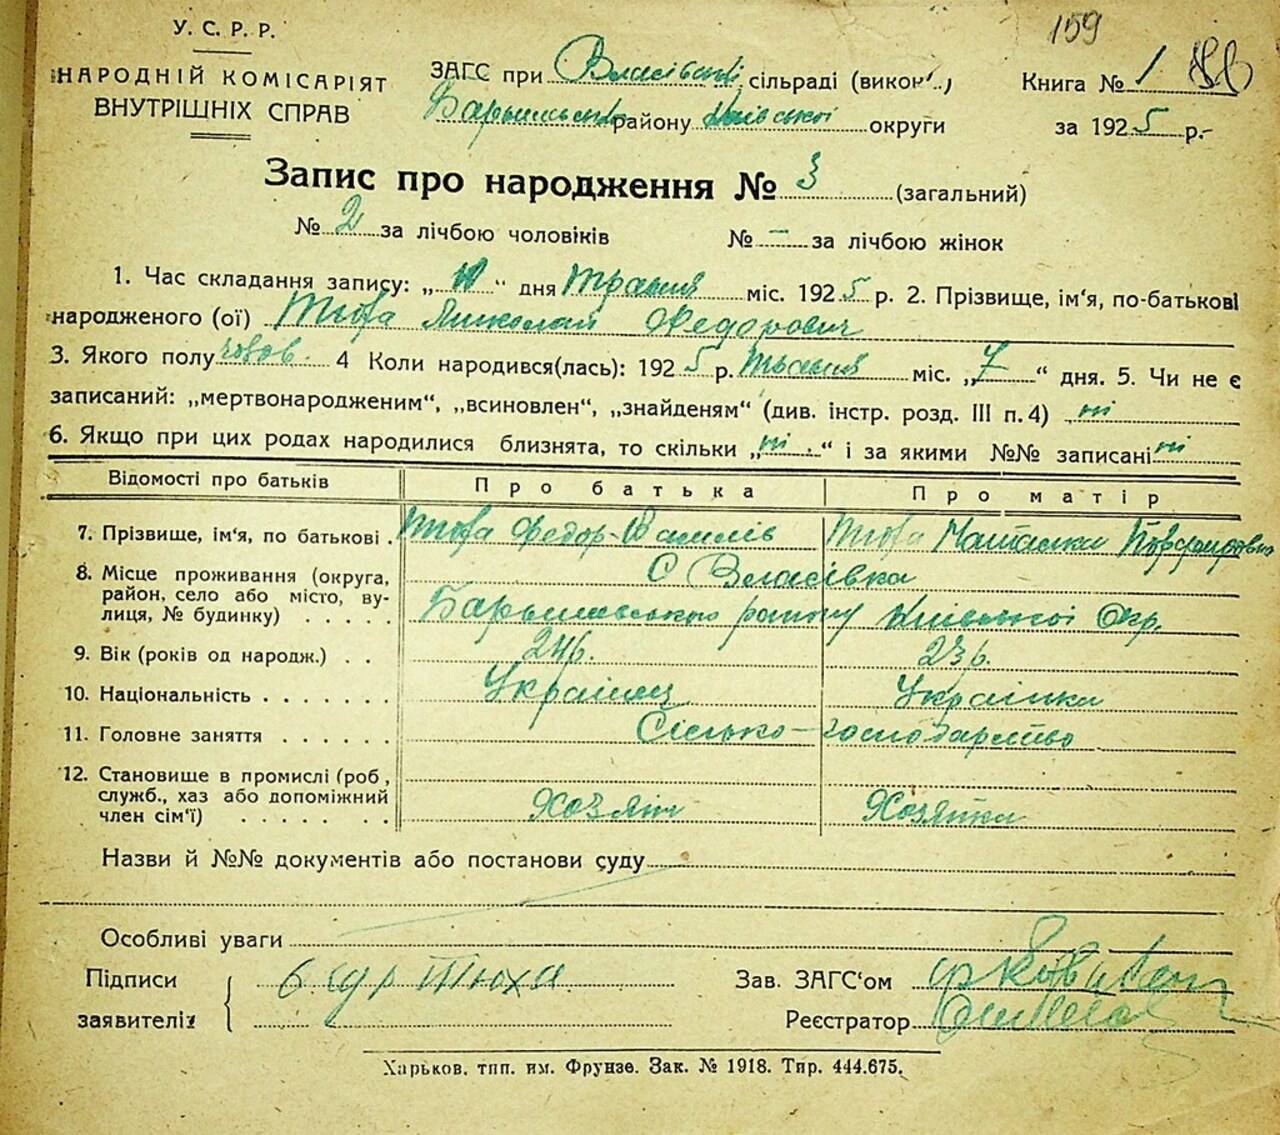 159
У. С. Р. Р.
НАРОДНІЙ КОМІСАРІЯТ
ВНУТРІШНІХ СПРАВ
ЗАГС при Власівській сільраді (викон
района Київської округи
Книга № 1
за 1925 р.
Запис про народження № 3 (загальний)
№ 2 за лічбою чоловіків № – за лічбою жінок
1. Час складання запису: „10“ дня Травня міс. 1925 р. 2. Прізвище, ім'я, по-батькові
народженого (ої) Миколай Федорович
3. Якого полу чолов. 4 Коли народився(лась): 1925 р. Травня міс. „7“ дня. 5. Чи не є
записаний: „мертвонародженим“, „всиновлен“, „знайденям“ (див. інстр. розд. III п. 4) ні
6. Якщо при цих родах народилися близнята, то скільки „ні“ і за якими №№ записані ні
Відомості про батьків Про батька Про матір
7. Прізвище, ім'я, по батькові . Федор Василів
8. Місце проживання (округа, С Власівка
район, село або місто, ву-
лиця, № будинку) . . . . . Баришавського району Київської Окр.
9. Вік (років од народж.) . . 24 р. 23 р.
10. Національність . . . . . . . Українец Українка
11. Головне заняття . . . . . . Сільсько-господарство
12. Становище в промислі (роб,
служб., хаз або допоміжний Хозяін Хозяйка
член сім'ї) . . . . . . .
Назви й №№ документів або постанови суду
Особливі уваги
Підписи Тюха
заявителів
Зав. ЗАГС'ом
Реєстратор
Харьков. тип. им. Фрунзе. Зак. № 1918. Тир. 444.675.